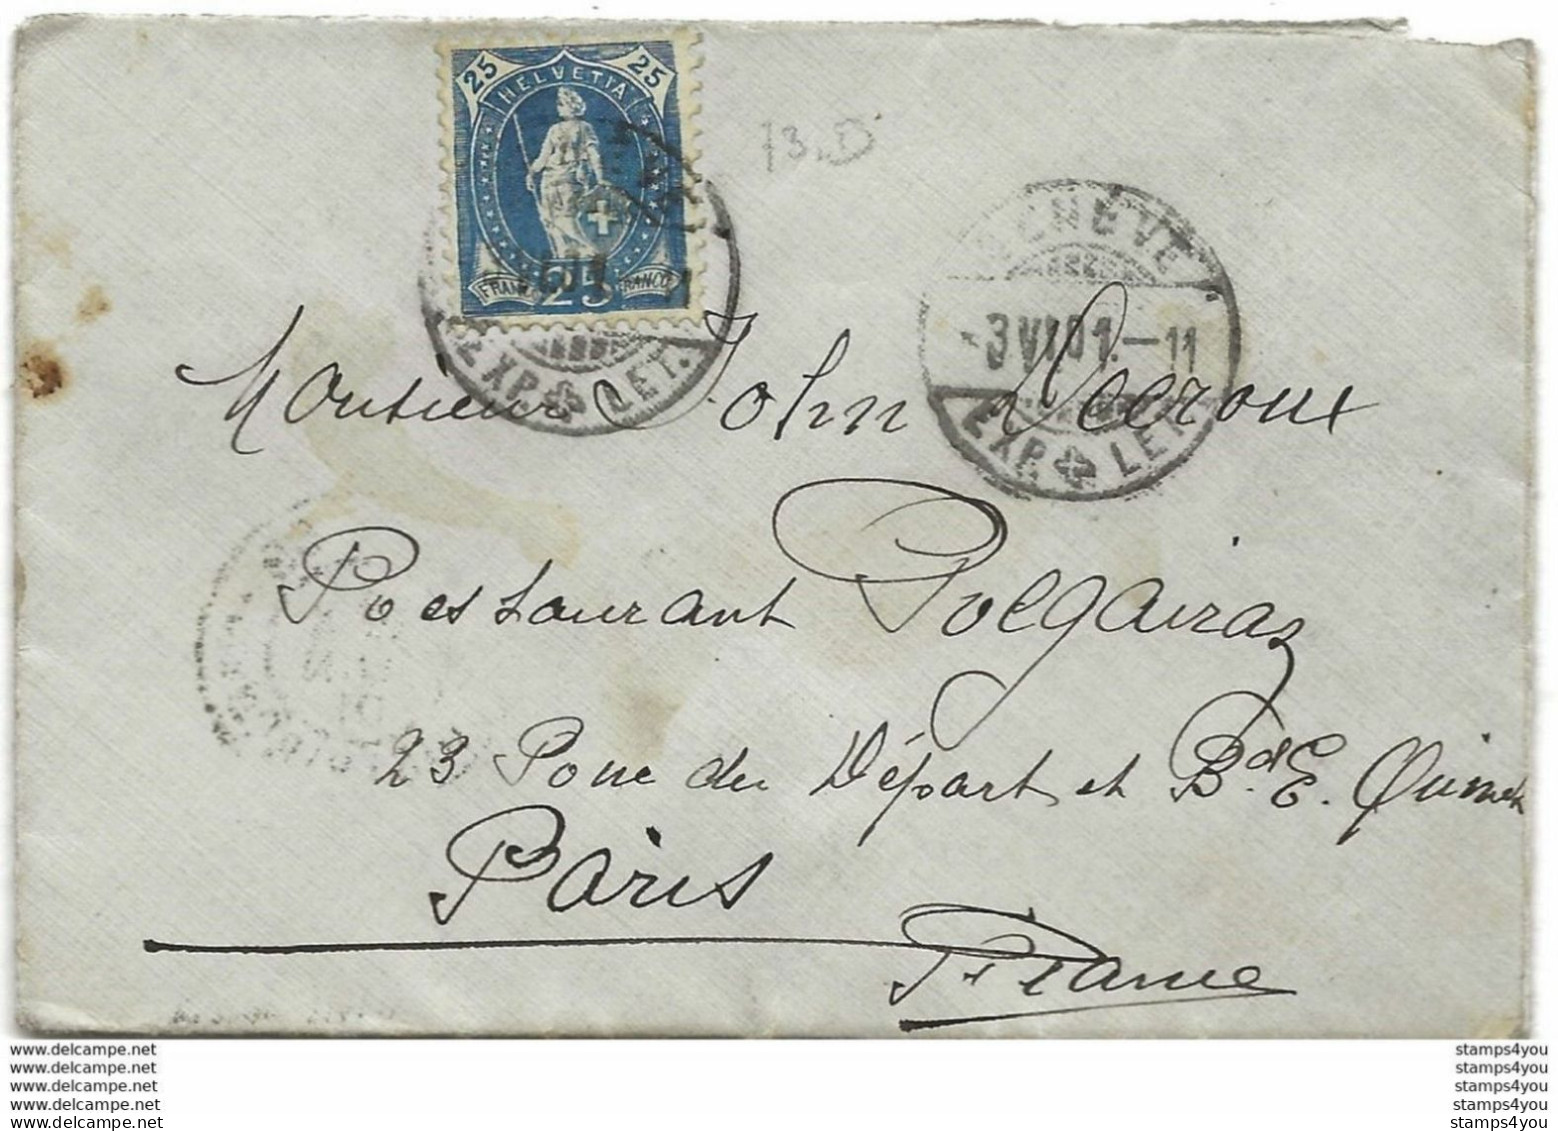 25 25
HELVETIA
FRANCO 25 FRANCO
73.D
EXP. LET.
GENÈVE
-3 VI 01.-11
EXP. LET.
Monsieur John Decroux
Restaurant Polgairas
23 Rue du Départ et Bd. E. Quinet
Paris
France
www.delcampe.net
www.delcampe.net
www.delcampe.net
www.delcampe.net
www.delcampe.net
stamps4you
stamps4you
stamps4you
stamps4you
stamps4you